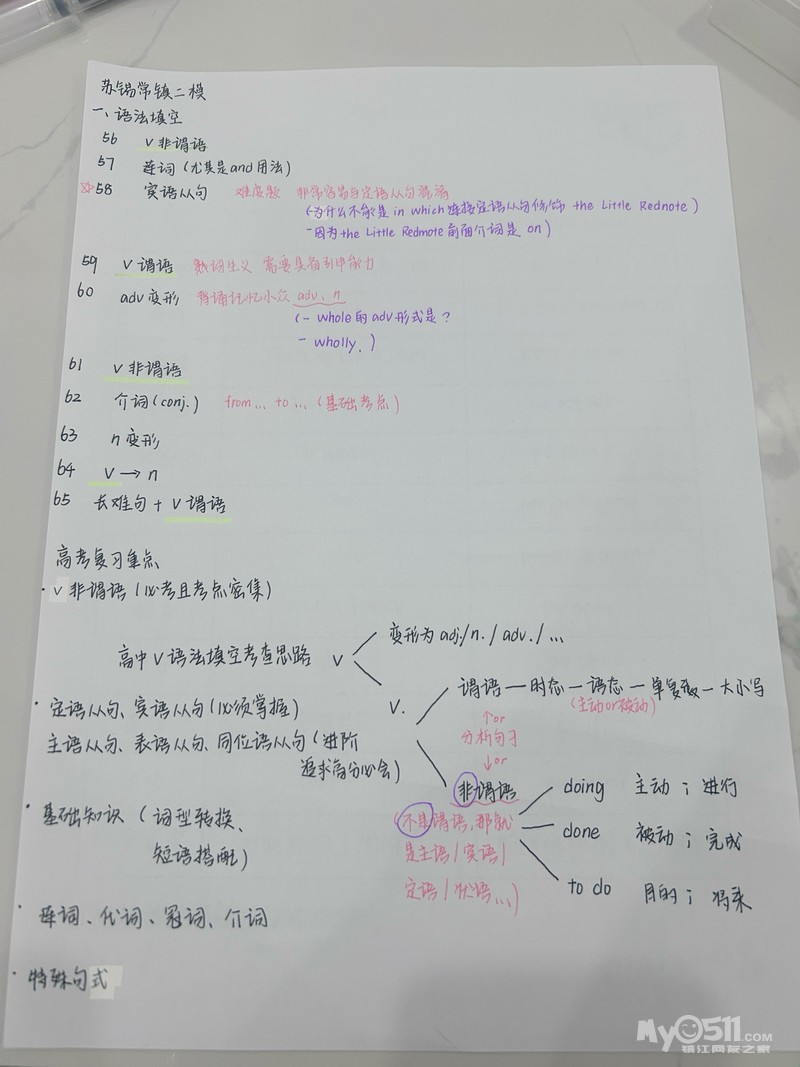 苏锡常镇二模
一、语法填空
56 v 非谓语
57 连词（尤其是and用法）
58 宾语从句 难度题 非常容易与定语从句混淆
（为什么不能是 in which 连接定语从句修饰 the Little Rednote）
-因为 the Little Rednote 前面介词是 on）
59 v 谓语 熟词生义 需要具备引申能力
60 adv 变形 背诵记忆小众 adv、n
（- whole的 adv 形式是？
- wholly.）
61 v 非谓语
62 介词（conj.） from... to...（基础考点）
63 n 变形
64 v → n
65 长难句 + v 谓语
高考复习重点
· v 非谓语（必考且考点密集）
高中 v 语法填空考查思路 v
变形为 adj./n./adv./...
v.
谓语—时态—语态—单复数—大小写
（主动or被动）
↑or
分析句子
↓or
非谓语
（不是谓语，那就
是主语/宾语/
定语/状语...）
doing 主动；进行
done 被动；完成
to do 目的；将来
· 定语从句、宾语从句（必须掌握）
主语从句、表语从句、同位语从句（进阶
追求高分必会）
· 基础知识（词型转换、
短语搭配）
· 连词、代词、冠词、介词
· 特殊句式
My0511.COM
镇江网友之家